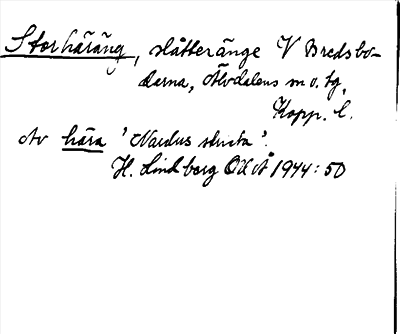 Storhäräng, slåtteränge V Bredsbo-
darna, Älvdalens sn o. tg,
Kopp. l.
Av hära 'Nardus stricta'.
H. Lindberg OUÅ 1944:50